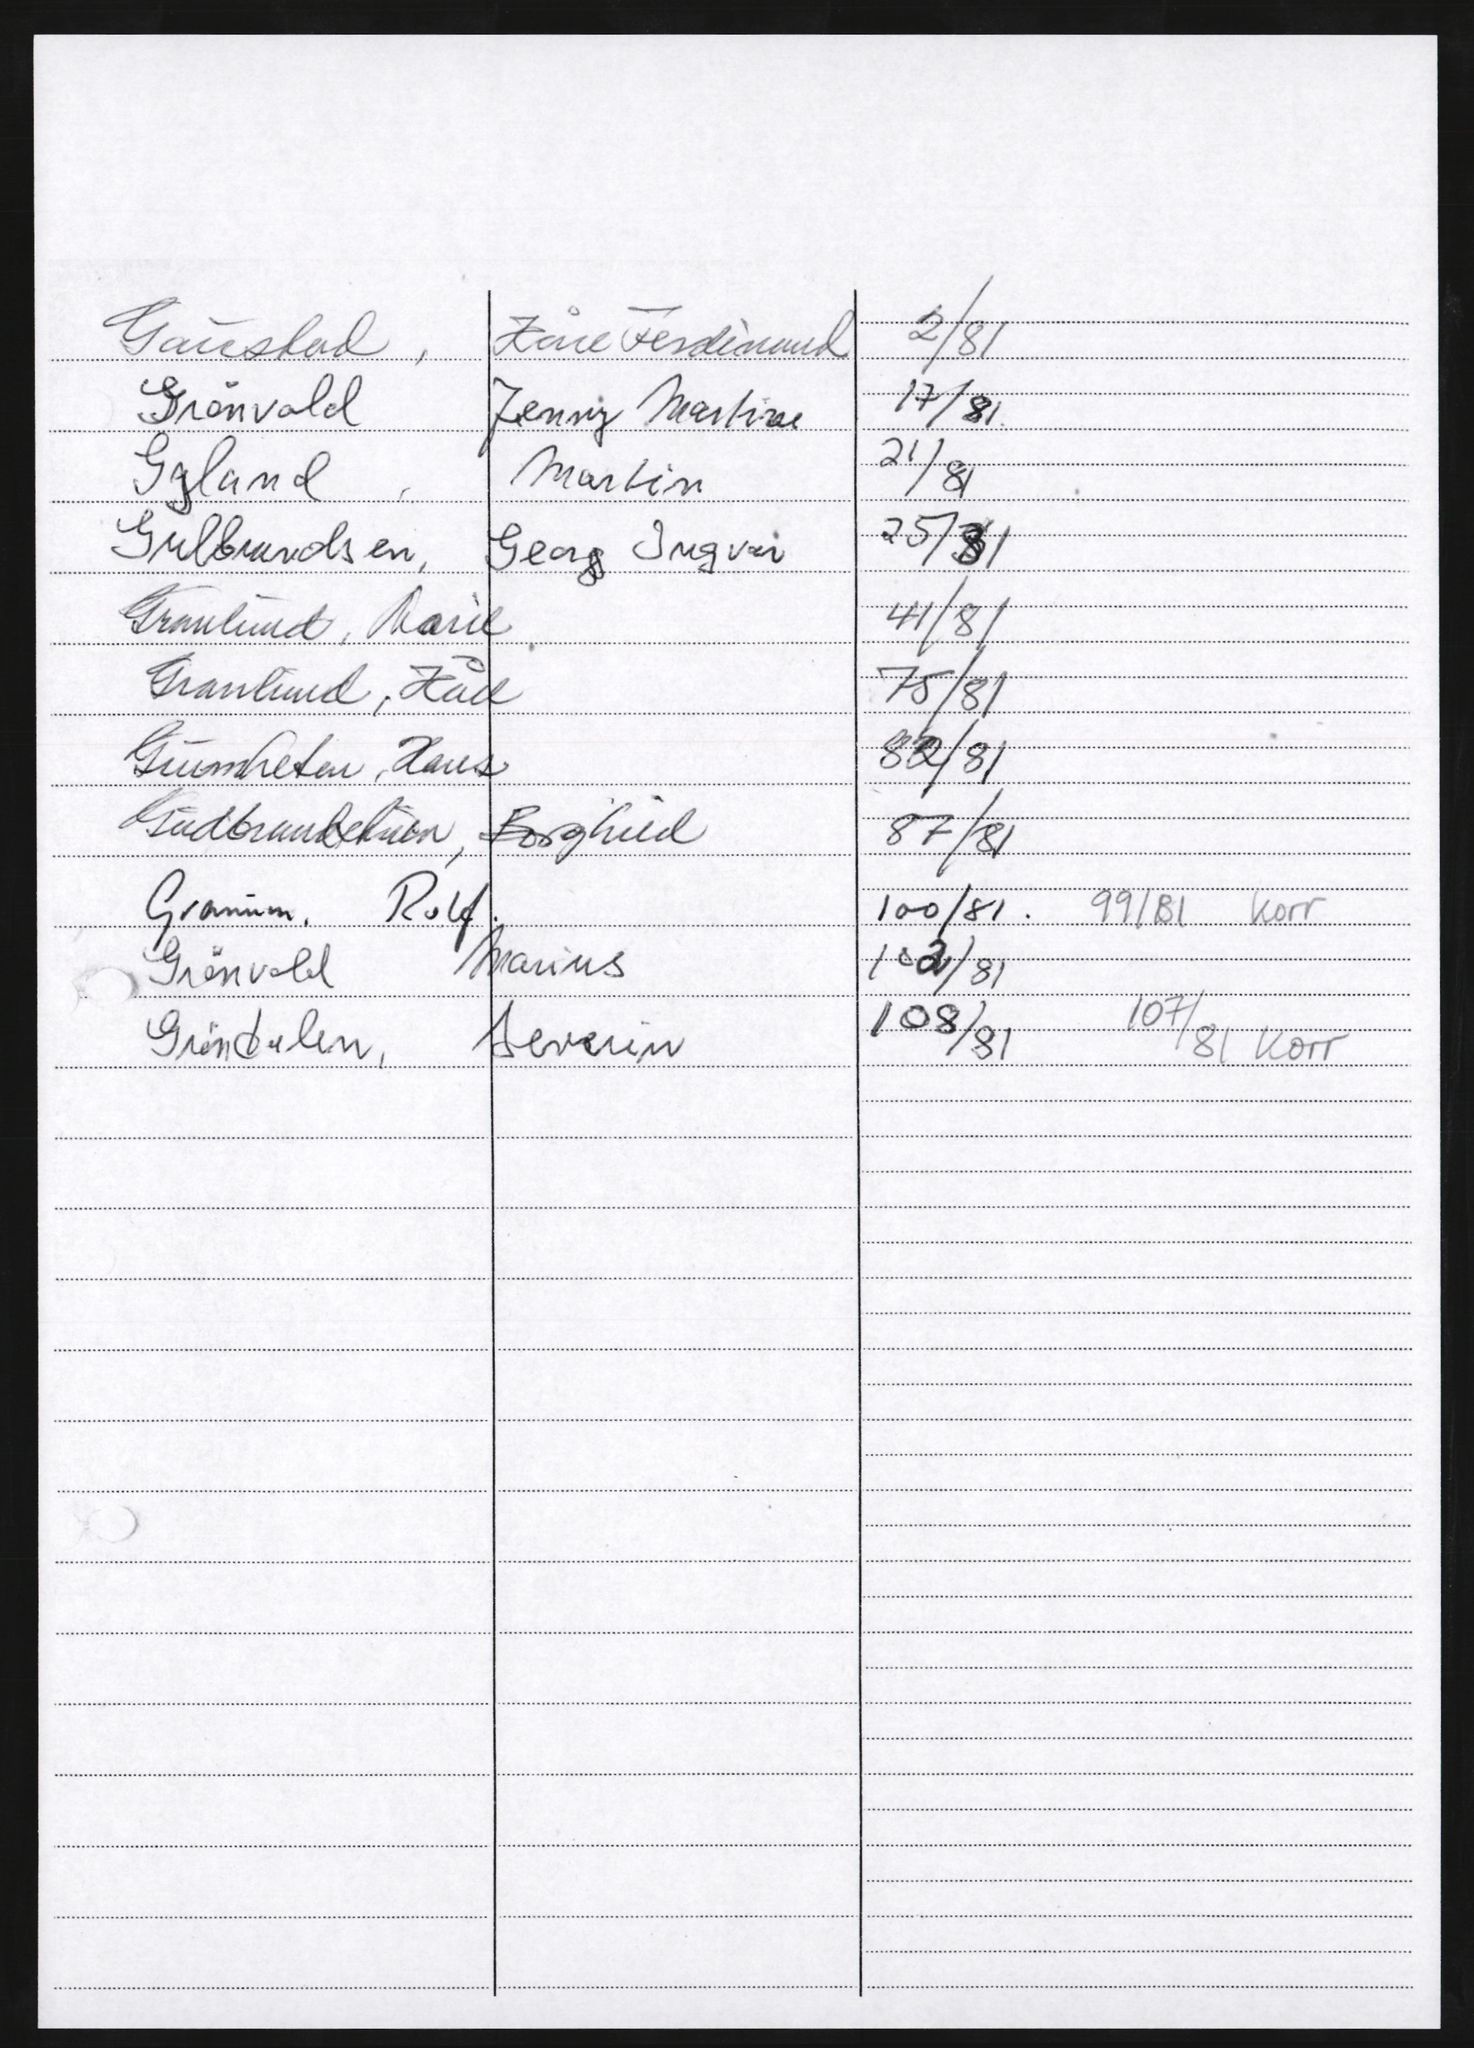 Gaustad, Kåre Ferdinand 2/81
Grönvold Jenny Martine 17/81.
Gyland, Martin 21/81
Gulbrandsen, Georg Ingvar 25/81
Granlund, Marie 41/81
Granlund, Kåre 75/81
Hans 82/81
Borghild 87/81
Granum, Rolf. 100/81. 99/81 Korr
Grönvold Marius 102/81
Gröndalen, Severin 108/81 107/81 Korr